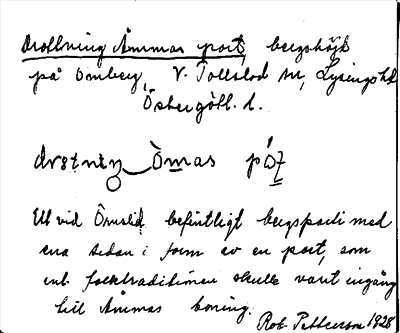 Drottning Åmmas port, bergshöjd
på Omberg, V. Tollstad sn, Lysings hd
Östergötl. l.
Ett vid Ömslid befintligt bergsparti med
ena sidan i form av en port, som
enl. folktraditionen skulle varit ingång
till Åmmas boning.
Rob. Pettersson 1928